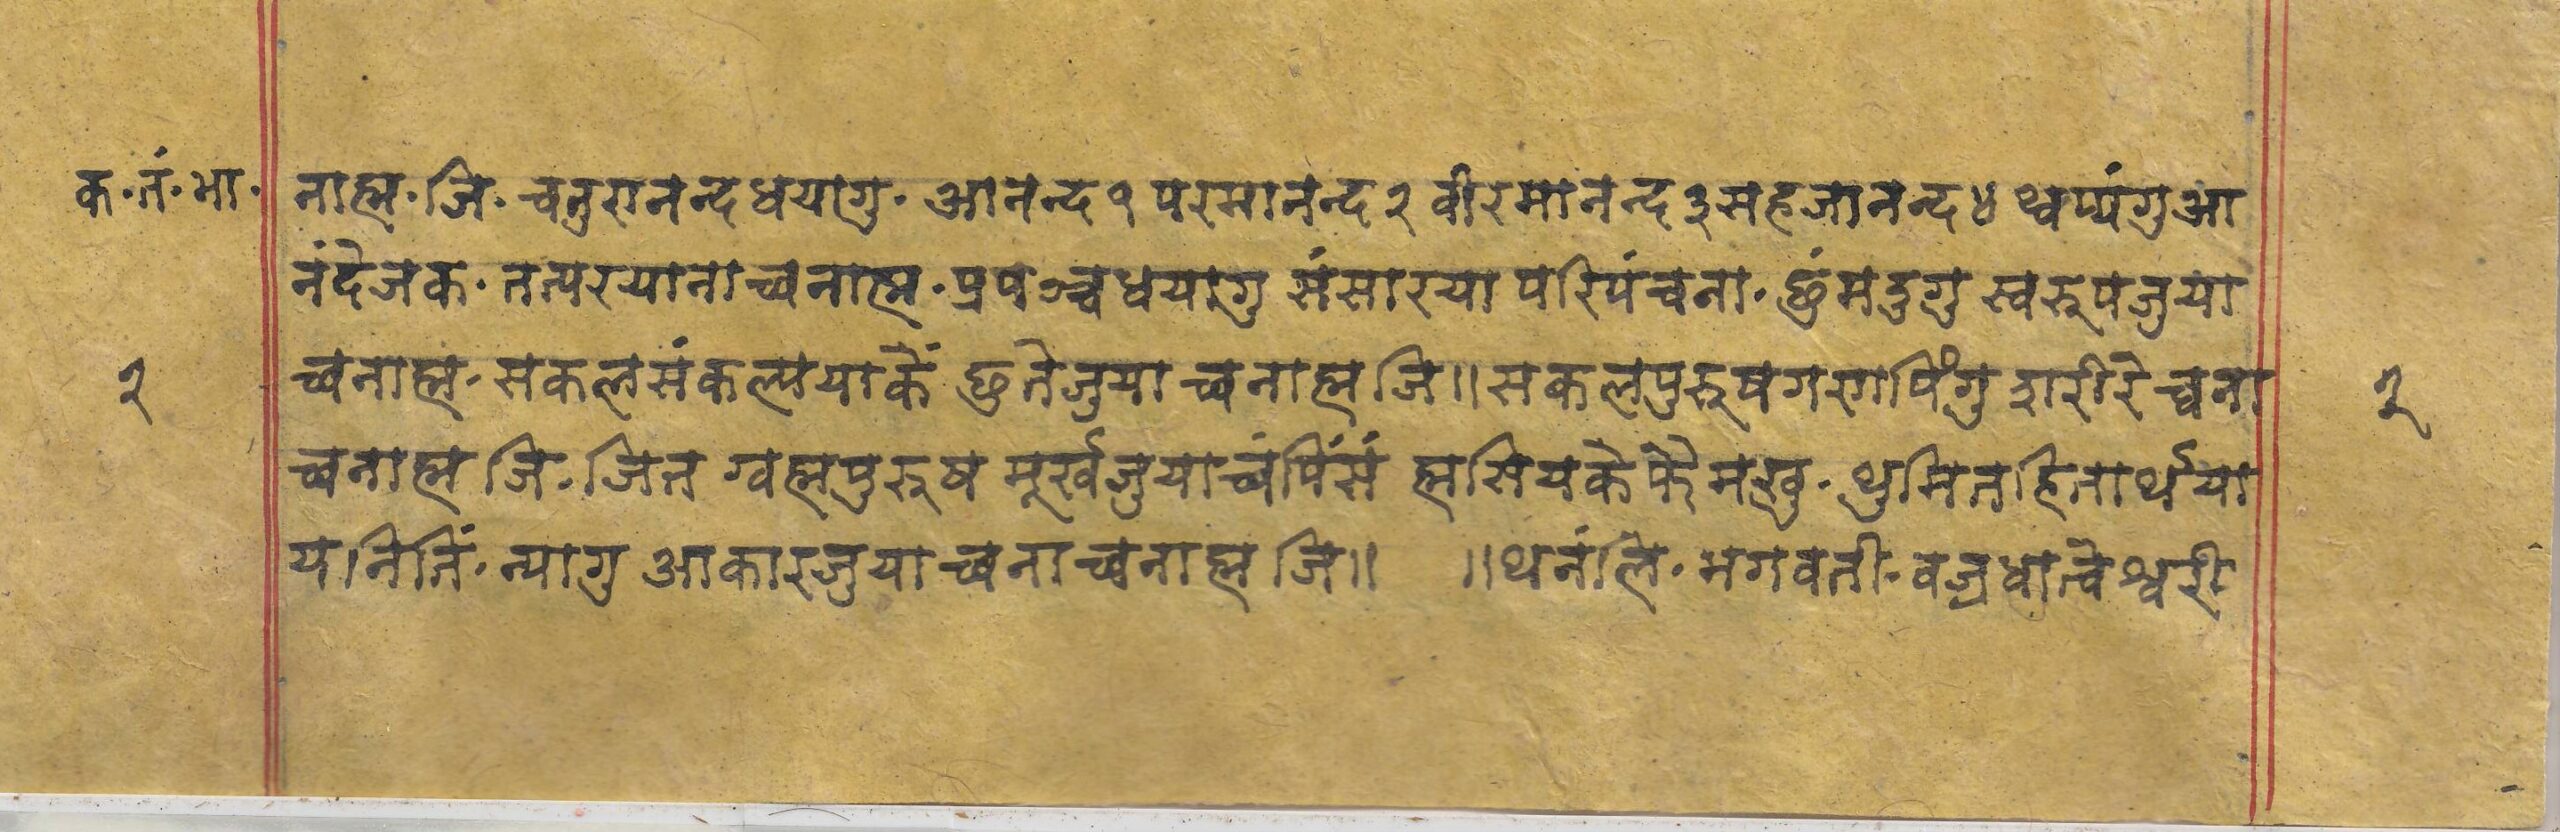 क॰तं॰भा॰ नाह्म॰जि॰चतुरानन्दधयागु॰आनन्द१परमानन्द२वीरमानन्द३सहजानन्द४थ्वप्यंगुआ
नंदेजक॰तत्परयानाच्वनाह्म॰प्रपञ्चधयागु संसारया परिपंचना॰छुंमदुगु स्वरूपजुया
२ च्वनाह्म॰सकलसंकल्पयाकें छुतेजुया च्वनाह्मजि॥सकलपुरूषगणपिंगु शरीरे च्वना २
च्वनाह्म जि॰जित ग्वह्मपुरूष मूर्खजुयाच्वंपिंसं ह्मसियके फैमखु॰थुमितहितार्थया
यनितिं॰न्यागु आकारजुया च्वनाच्वनाह्म जि॥ ॥थनंलि॰भगवती॰वज्रधात्वेश्वरी